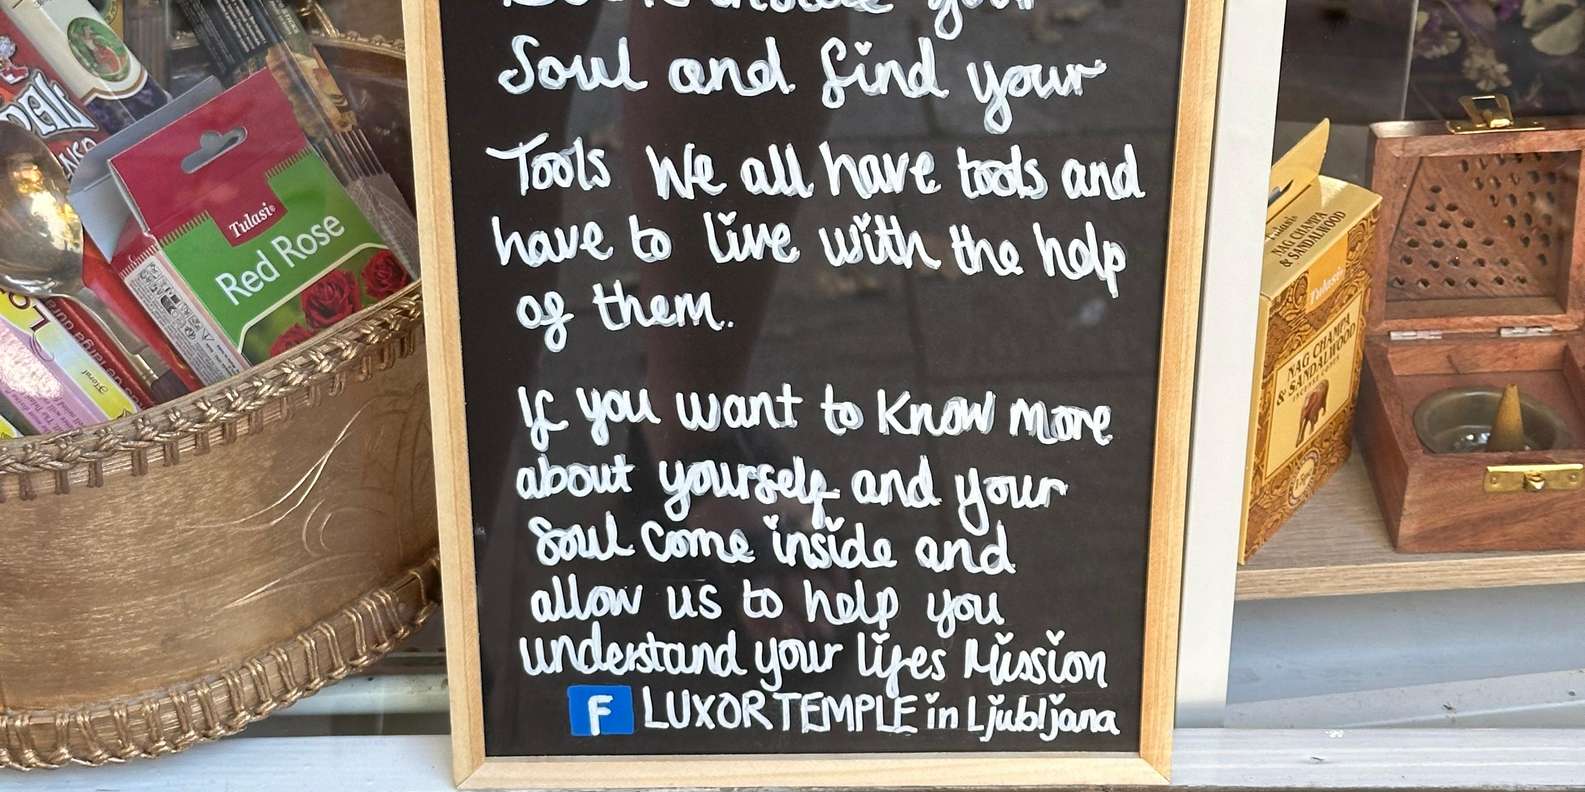 inside your
Soul and find your
Tools We all have tools and
have to live with the help
of them.
If you want to Know more
about yourself and your
Soul come inside and
allow us to help you
understand your lifes Mission
F LUXOR TEMPLE in Ljubljana
Tulasi®
Red Rose
NAG CHAMPA
& SANDALWOOD
Tulasi
NAG CHAMPA
& SANDALWOOD